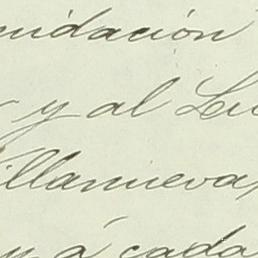 uidación
y al Lu
Villanueva,
y á cada